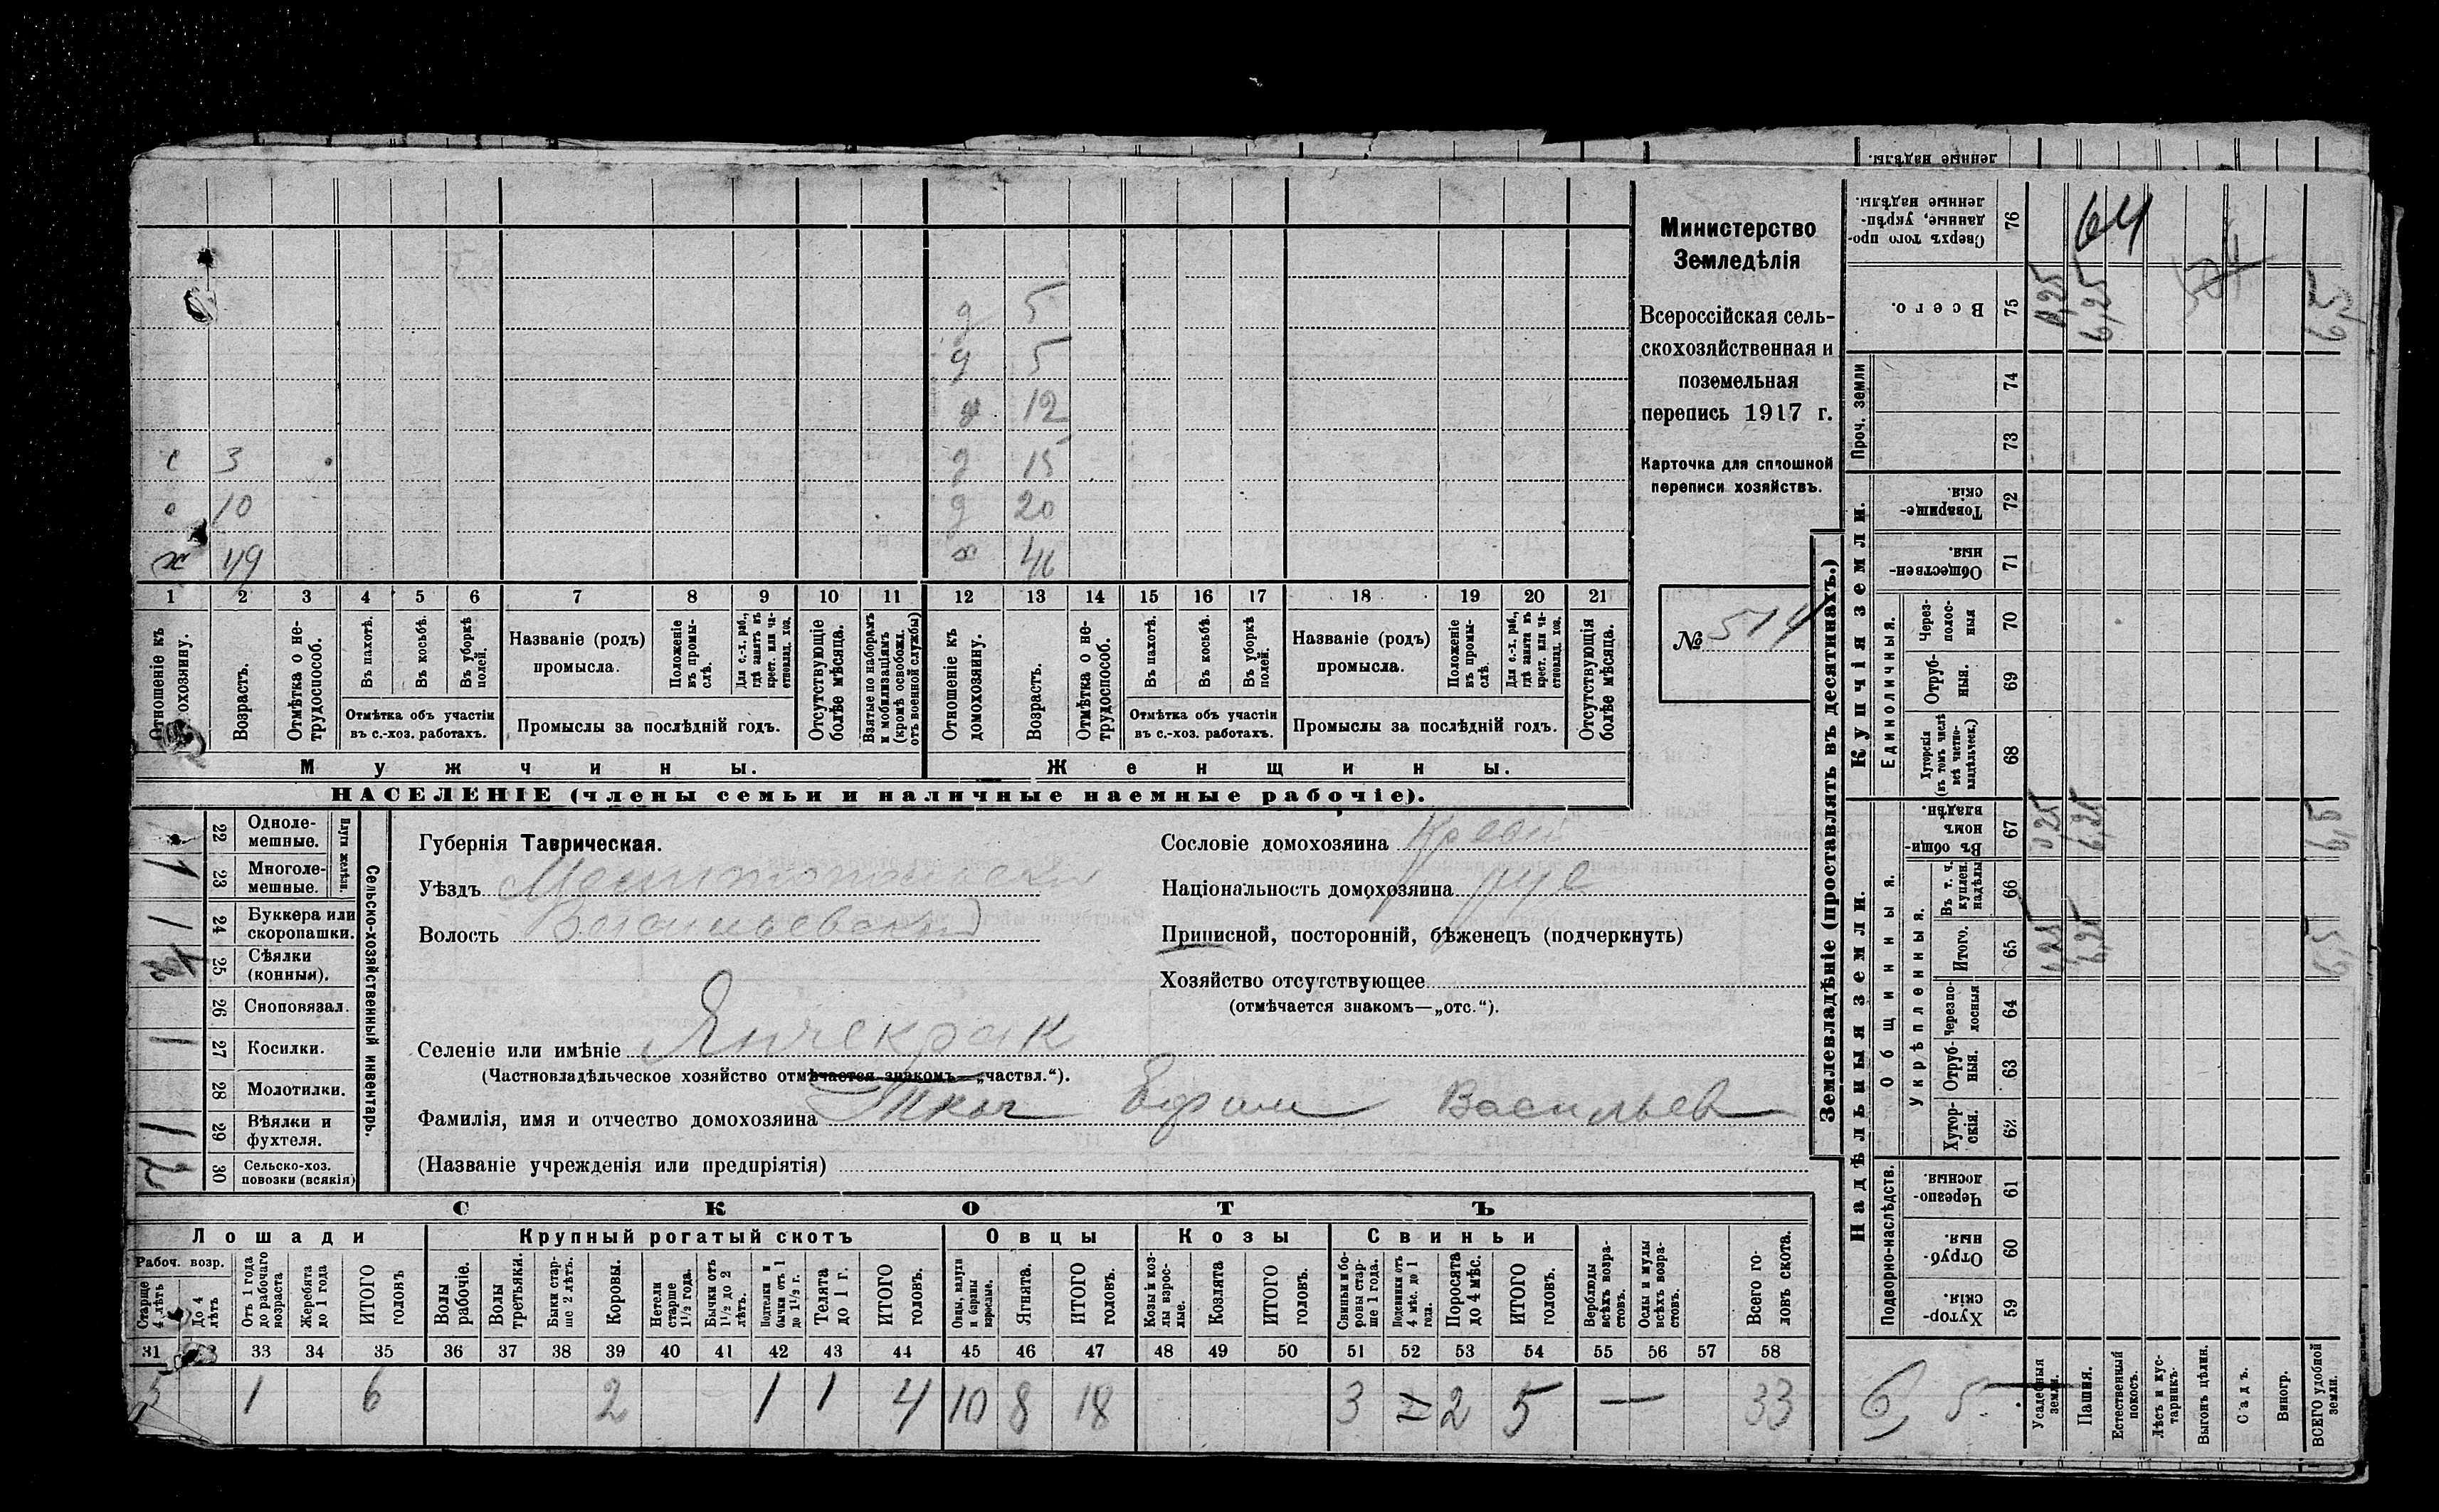 денные надѣлы.
д 5
д 5
д 12
с 3 д 15
с 10 д 20
х 49 х 46
1 2 3 4 5 6 7 8 9 10 11 12 13 14 15 16 17 18 19 20 21
Отношеніе къ домохозяину.
Возрастъ.
Отмѣтка о не-
трудоспособ.
Въ пахотѣ.
Въ косьбѣ.
Въ уборкѣ
полей.
Отмѣтка объ участіи
въ с.-хоз. работахъ.
Названіе (родъ)
промысла.
Положеніе
въ промы-
слѣ.
Для с.-х. раб.,
гдѣ занятъ въ
крест. или ча-
стновлад. хоз.
Промыслы за послѣдній годъ.
Отсутствующіе
болѣе мѣсяца.
Взятые по наборамъ
и мобилизаціямъ
(кромѣ освобожд.
отъ военной службы)
Отношеніе къ
домохозяину.
Возрастъ.
Отмѣтка о не-
трудоспособ.
Въ пахотѣ.
Въ косьбѣ.
Въ уборкѣ
полей.
Отмѣтка объ участіи
въ с.-хоз. работахъ.
Названіе (родъ)
промысла.
Положеніе
въ промы-
слѣ.
Для с.-х. раб.,
гдѣ занята въ
крест. или ча-
стновлад. хоз.
Промыслы за послѣдній годъ.
Отсутствующія
болѣе мѣсяца.
Мужчины.
Женщины.
НАСЕЛЕНІЕ (члены семьи и наличные наемные рабочіе).
Министерство
Земледѣлія
Всероссійская сель-
скохозяйственная и
поземельная
перепись 1917 г.
Карточка для сплошной
переписи хозяйствъ.
№ 514
22 Одноле-
мешные.
1 23 Многоле-
мешные.
Плуги желѣзн.
1 24 Буккера или
скоропашки.
25 Сѣялки
(конныя).
26 Сноповязал.
1 27 Косилки.
28 Молотилки.
1 29 Вѣялки и
фухтеля.
2 30 Сельско-хоз.
повозки (всякія)
Сельско-хозяйственный инвентарь.
Губернія Таврическая.
Уѣздъ Мелитопольскій
Волость Васильевской
Селеніе или имѣніе Янчекрак
(Частновладѣльческое хозяйство отмѣчается знакомъ—„частвл.“).
Фамилія, имя и отчество домохозяина Ткач Ефим Васильев
(Названіе учрежденія или предпріятія)
Сословіе домохозяина
Національность домохозяина рус
Приписной, посторонній, бѣженецъ (подчеркнуть)
Хозяйство отсутствующее
(отмѣчается знакомъ—„отс.“).
СКОТЪ
Лошади Крупный рогатый скотъ Овцы Козы Свиньи
Рабоч. возр.
Старше
4 лѣтъ
До 4
лѣтъ
Отъ 1 года
до рабочаго
возраста
Жеребята
до 1 года
ИТОГО
головъ
Волы
рабочіе.
Волы
третьяки.
Быки стар-
ше 2 лѣтъ.
Коровы.
Нетели
старше
1½ года.
Бычки отъ
1½ до 2
лѣтъ.
Подтелки и
бычки отъ 1
до 1½ г.
Телята
до 1 г.
ИТОГО
головъ.
Овцы, валухи
и бараны
взрослые.
Ягнята.
ИТОГО
головъ.
Козы и коз-
лы взрос-
лые.
Козлята
ИТОГО
головъ.
Свиньи и бо-
ровы стар-
ше 1 года.
Подсвинки отъ
4 мѣс. до 1
года.
Поросята
до 4 мѣс.
ИТОГО
головъ.
Верблюды
всѣхъ возра-
стовъ.
Ослы и мулы
всѣхъ возра-
стовъ.
Всего го-
ловъ скота.
31 33 34 35 36 37 38 39 40 41 42 43 44 45 46 47 48 49 50 51 52 53 54 55 56 57 58
5 1 6 2 1 1 4 10 8 18 3 2 5 — 33
Землевладѣніе (проставлять въ десятинахъ.)
Купчія земли.
Надѣльныя земли.
Сверхъ того про-
данные, укрѣп-
ленные надѣлы.
76
64
Всего.
75 0,25 6,25 514 6,5
Проч. земли
74
73
Товарище-
скія.
72
Обществен-
ныя.
71
Единоличныя.
Через-
полос-
ныя
70
Отруб-
ныя.
69
Хуторскія
(въ томъ числѣ
всѣ частно-
владѣльческ.)
68
Общинныя.
Въ общин-
номъ
владѣн.
67 0,25 6,25 6,5
Укрѣпленныя.
Въ т. ч.
куплен.
надѣлы
66
Итого.
65 0,25 6,25 6,5
Черезпо-
лосныя
64
Отруб-
ныя.
63
Хутор-
скія.
62
Подворно-наслѣдств.
Черезпо-
лосныя.
61
Отруб-
ныя.
60
Хутор-
скія.
59
6,5
Усадебныя
земли.
Пашня.
Естественный
покосъ.
Лѣсъ и кус-
тарникъ.
Выгонъ цѣлин.
Садъ.
Виногр.
ВСЕГО удобной
земли.